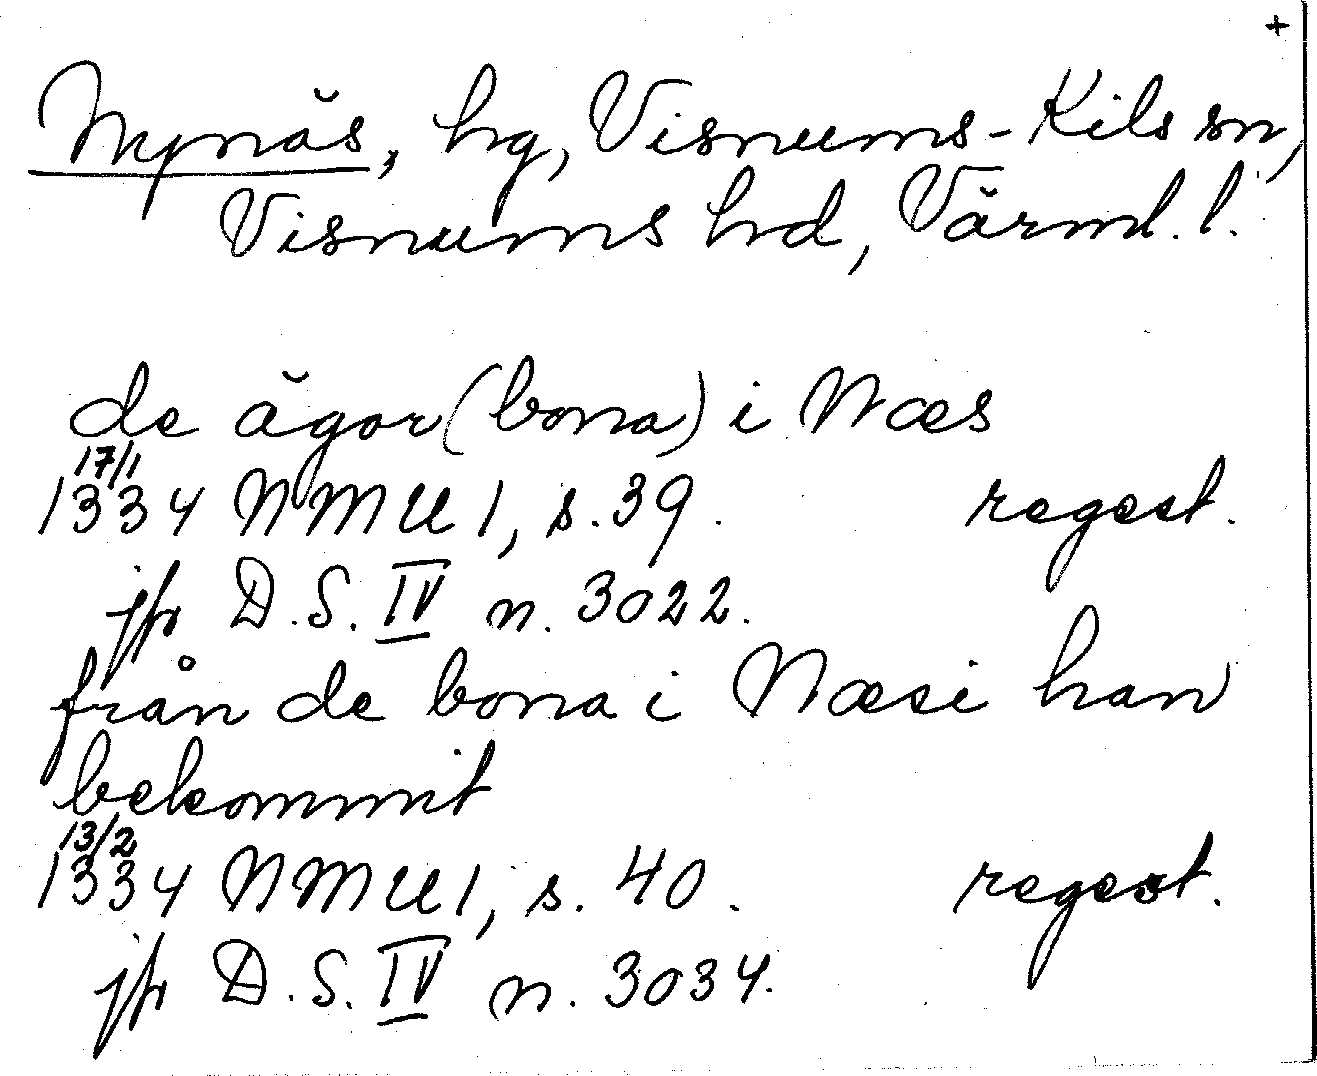 +
Nynäs, hg, Visnums-Kils sn,
Visnums hd, Värml. l.
de ägor (bona) i Næs
17/1
1334 NMU 1, s. 39. regest.
jfr D.S. IV n. 3022.
från de bona i Næsi han
bekommit
13/2
1334 NMU 1, s. 40. regest.
jfr D.S. IV n. 3034.